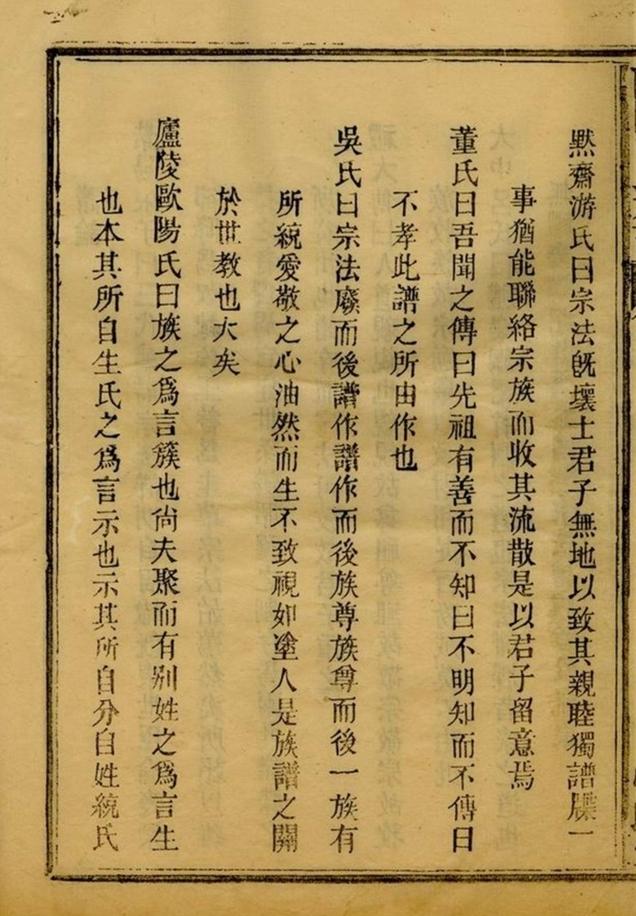 默齋游氏曰宗法旣壞士君子無地以致其親睦獨譜牒一
事猶能聯絡宗族而收其流散是以君子留意焉
董氏曰吾聞之傳曰先祖有善而不知曰不明知而不傳曰
不孝此譜之所由作也
吳氏曰宗法廢而後譜作譜作而後族尊族尊而後一族有
所統愛敬之心油然而生不致視如塗人是族譜之關
於世教也大矣
廬陵歐陽氏曰族之爲言簇也尙夫聚而有別姓之爲言生
也本其所自生氏之爲言示也示其所自分自姓統氏